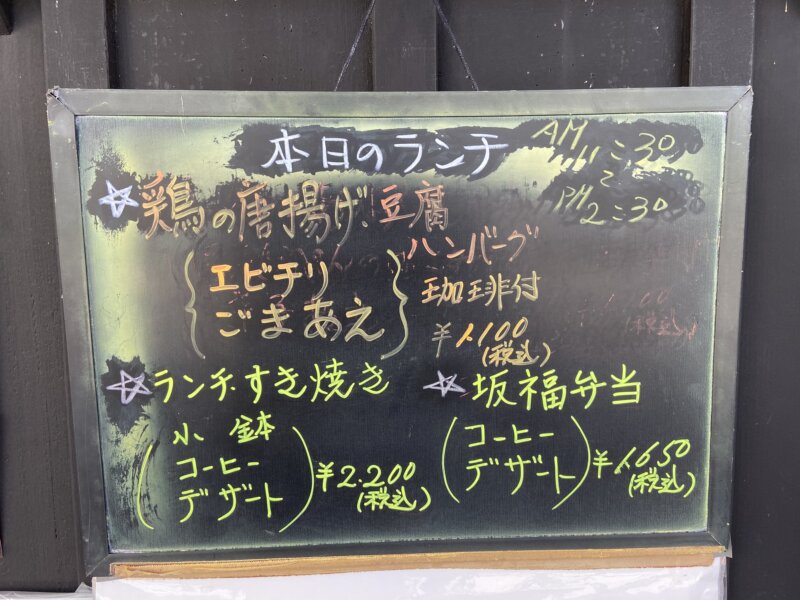 本日のランチ
AM 11:30
〜
PM 2:30
☆鶏の唐揚げ、豆腐
ハンバーグ
エビチリ
ごまあえ
珈琲付
¥1,100
(税込)
☆ランチすき焼き
小鉢
コーヒー
デザート
¥2,200
(税込)
☆坂福弁当
コーヒー
デザート
¥1,650
(税込)